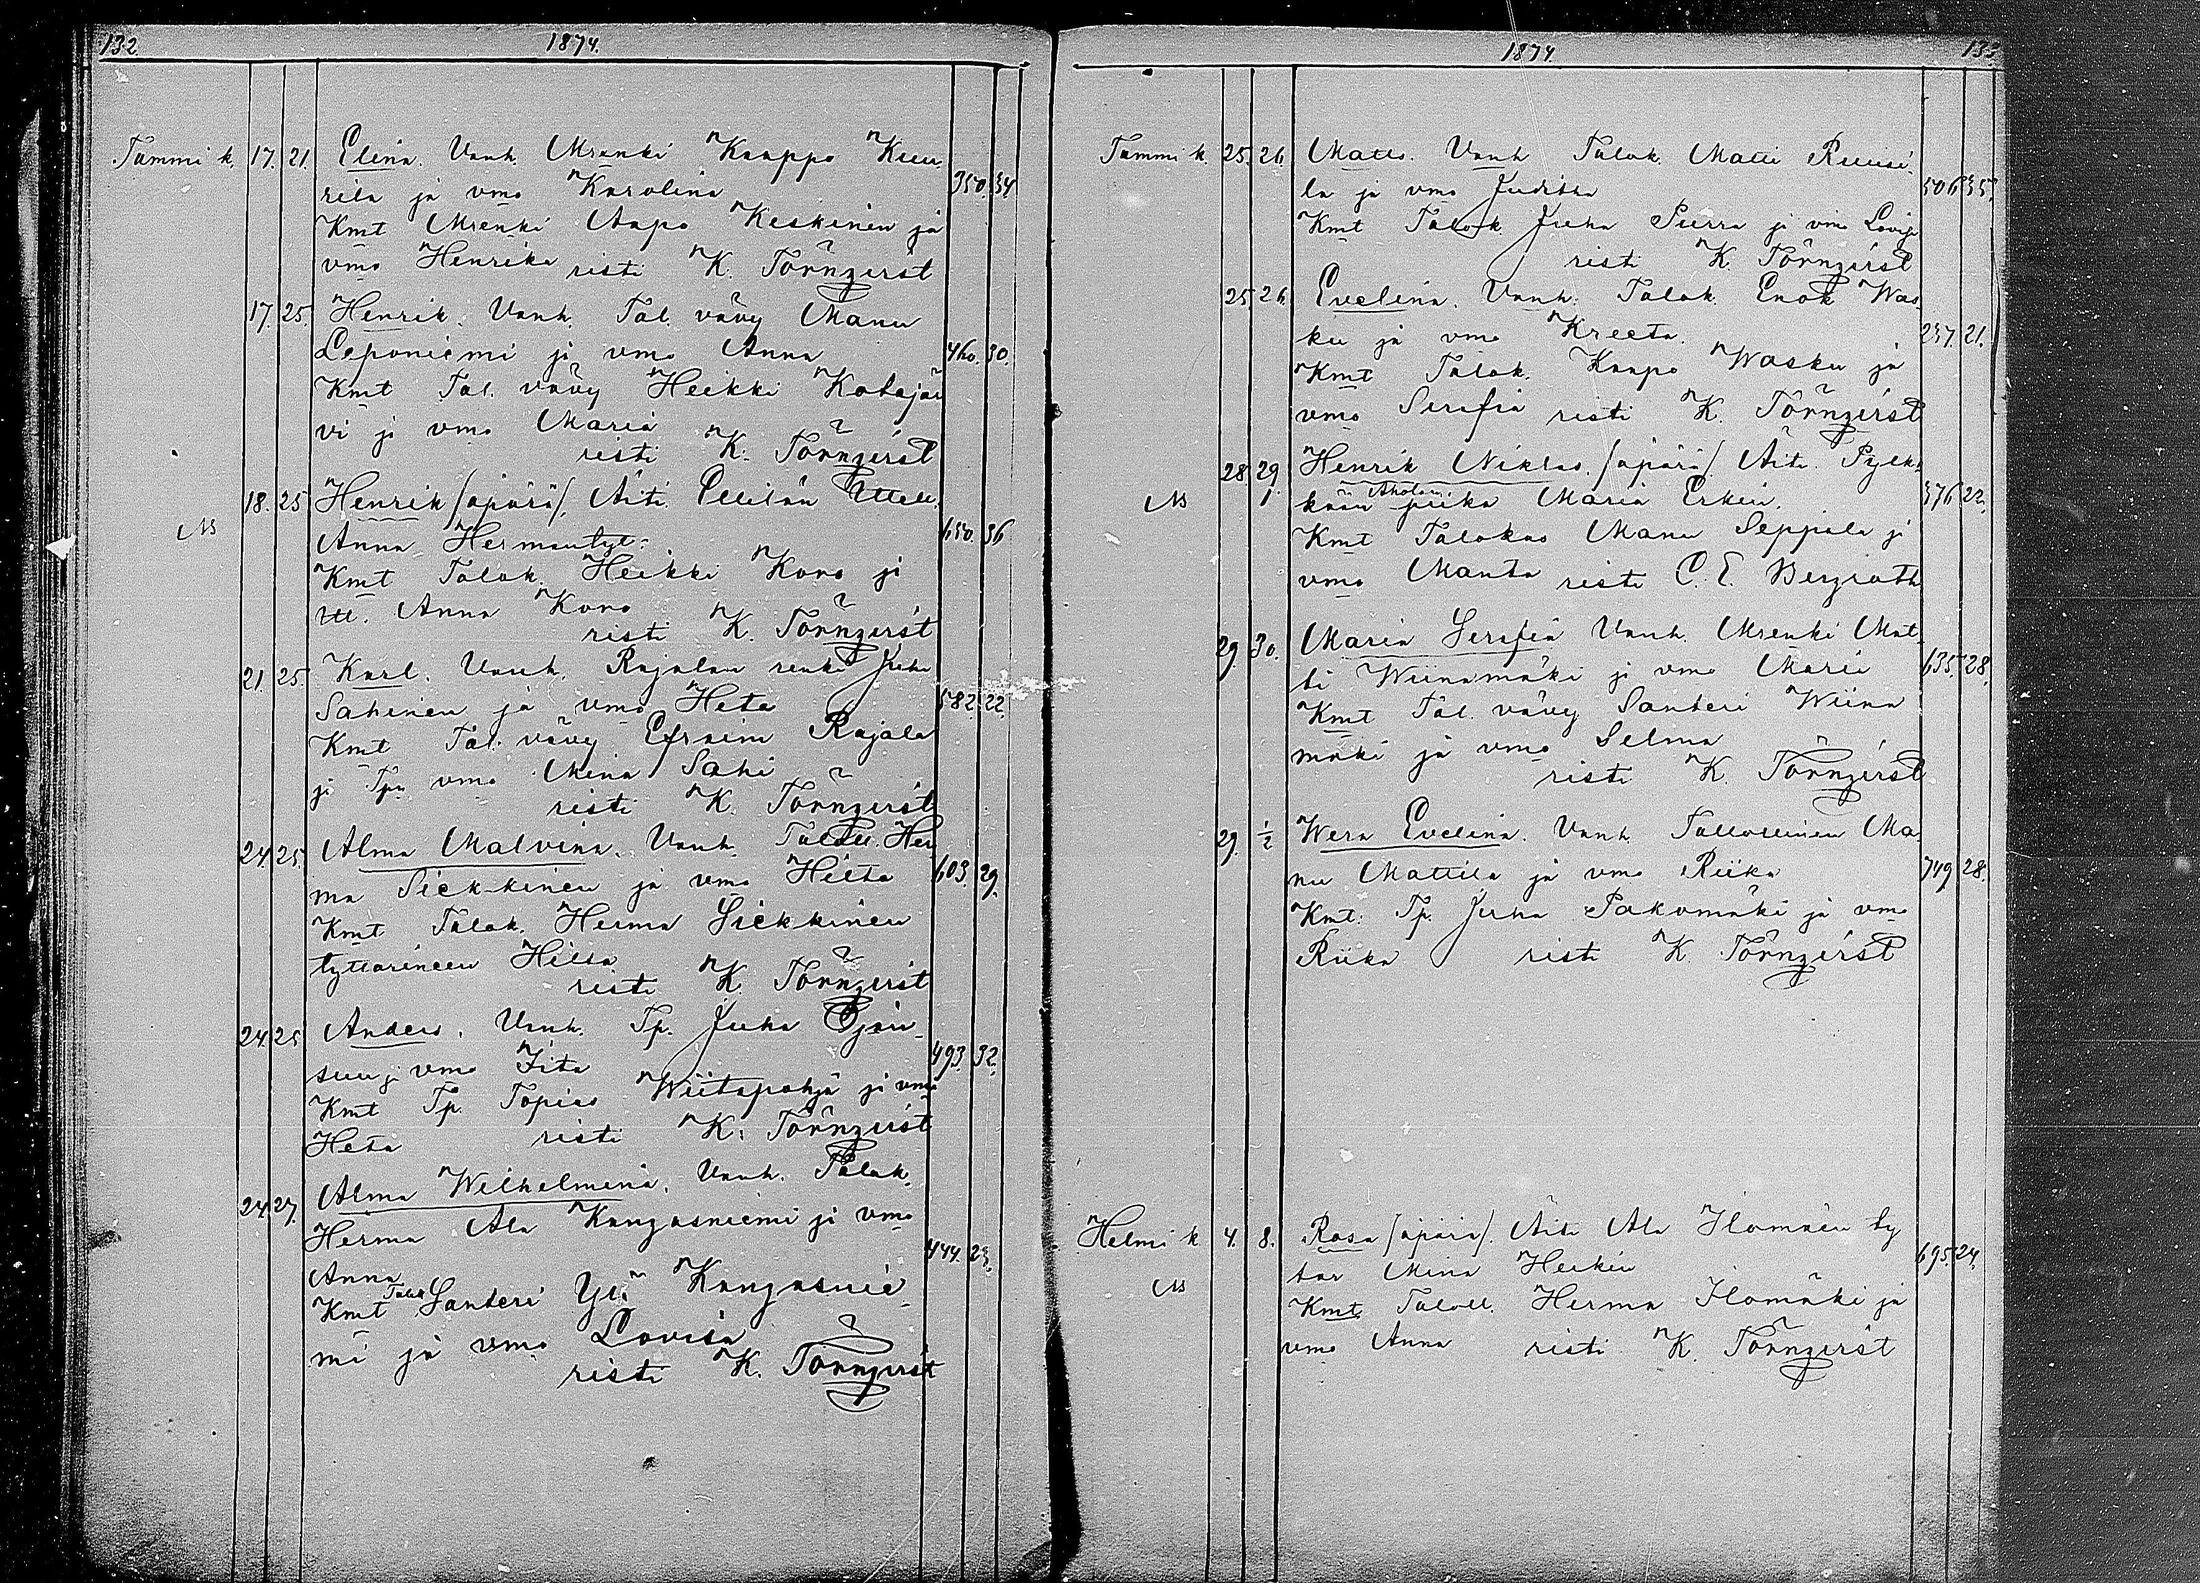 132. 1874.
Tammi k. 17. 21. Elina. Vanh. Mrenki Kaappo Kuu
rila ja vmo Karolina 350. 34.
Kmt Mrenki Aapo Keskinen ja
vmo Henrika risti K. Törnqvist
17. 25. Henrik. Vanh. Tal. vävy Manu
Leponiemi ja vmo Anna 460. 30.
Kmt Tal. vävy Heikki Katajär
vi ja vmo Maria
risti K. Törnqvist
18. 25. Henrik /äpärä/. Äiti
Anna Hermantyt: 650. 36
Kmt Talok. Heikki Koro ja
Anna Koro
risti K. Törnqvist
21. 25. Karl. Vanh. Rajalan renki Juha
Sahinen ja vmo Heta 582. 22.
Kmt Tal. vävy Efraim Rajala
ja Tpn vmo Mina Sahi
risti K. Törnqvist
24. 25. Alma Malvina. Vanh. Her
ma Siekkinen ja vmo Hilta 603. 29.
Kmt Talok. Herma Siekkinen
tyttärineen Hilta
risti K. Törnqvist
24. 25 Anders. Vanh. Tp. Juha
suu ja vmo Fita 493 32.
Kmt Tp. Topias Wiitapohja ja vmo
Heta risti K. Törnqvist
24. 27. Alma Wilhelmina. Vanh. Talok.
Herma Ala Kangasniemi ja vmo
Anna 444. 23.
Kmt Talok Santeri Yli Kangasnie
mi ja vmo Lovisa
risti K. Törnqvist
1874 133
Tammi k. 25. 26. Matts. Vanh Talok. Matti Ruusi
la ja vmo Juditha 506 35.
Kmt Talok Juha Purra ja vmo Lovisa
risti K. Törnqvist
25. 26. Evelina. Vanh. Talok. Enok Was
ku ja vmo Kreeta. 237. 21.
Kmt Talok. Kaapo Wasku ja
vmo Serafia risti K. Törnqvist
28 29. Henrik Niklas. /äpärä/ Äiti. Pylk
kään Aholan piika Maria Erkin. 376 22.
Kmt Talokas Manu Seppälä ja
vmo Manta risti C. E. Bergroth
29. 30. Maria Serafia Vanh. Mrenki Mat
ti Wiinamäki ja vmo Maria 635. 28.
Kmt Tal. vävy Santeri Wiina
mäki ja vmo Selma
risti K. Törnqvist
29. 1/2 Wera Evelina. Vanh. Tallollinen Ma
nu Mattila ja vmo Riika 749 28.
Kmt: Tp. Juha Pakomäki ja vmo
Riika risti K Törnqvist
Helmi k 4. 8. Rosa /äpärä/. Äiti Ala Ilomäen ty
tär Mina Heikin 695. 24.
Kmt Taloll. Herma Ilomäki ja
vmo Anna risti K. Törnqvist